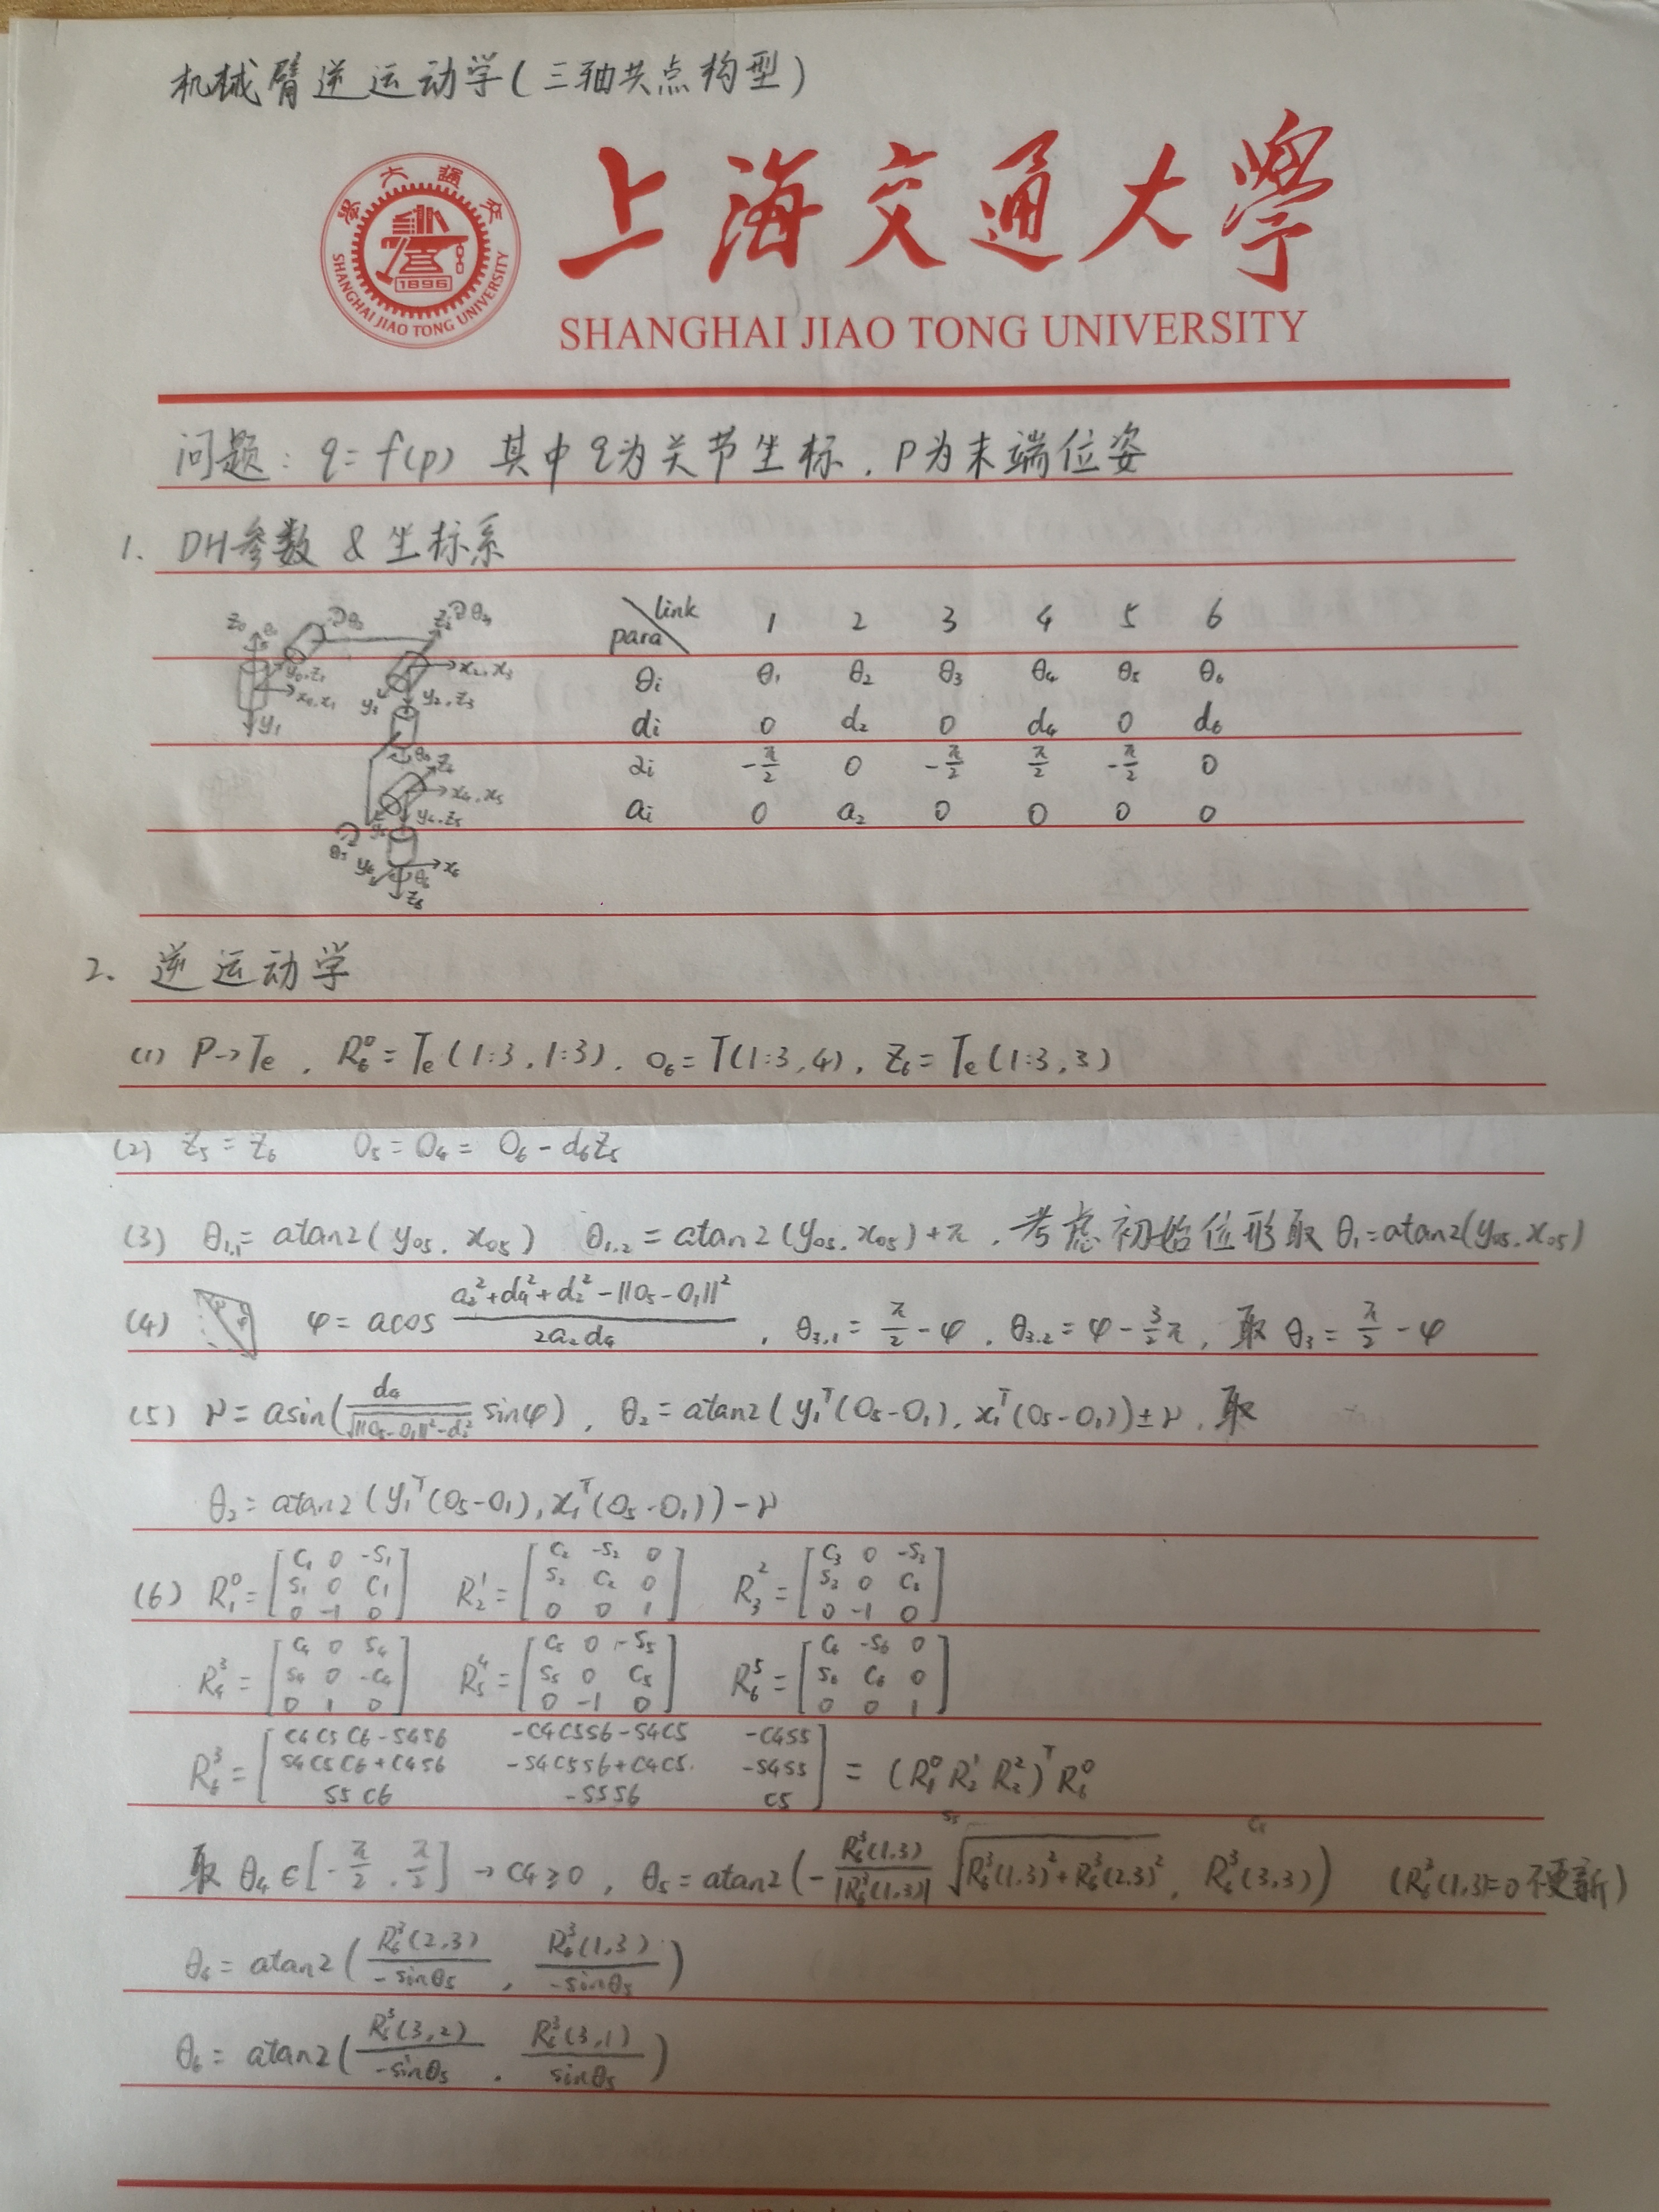 机械臂逆运动学(三轴共点构型)
上海交通大学
SHANGHAI JIAO TONG UNIVERSITY
1896
SHANGHAI JIAO TONG UNIVERSITY
问题: q = f(p) 其中q为关节坐标, P为末端位姿
1. DH参数 & 坐标系
para\link 1 2 3 4 5 6
θi θ₁ θ₂ θ₃ θ₄ θ₅ θ₆
di 0 d₂ 0 d₄ 0 d₆
αi -π/2 0 -π/2 π/2 -π/2 0
ai 0 a₂ 0 0 0 0
2. 逆运动学
(1) P→Te, R₆⁰ = Te(1:3, 1:3), o₆ = T(1:3, 4), Z₆ = Te(1:3, 3)
(2) Z₅ = Z₆ O₅ = O₄ = O₆ - d₆Z₅
(3) θ₁,₁ = atan2(y₀₅, x₀₅) θ₁,₂ = atan2(y₀₅, x₀₅)+π, 考虑初始位形取 θ₁=atan2(y₀₅, x₀₅)
(4) φ = acos (a₂²+d₄²+d₂²-||O₅-O₁||²)/(2a₂d₄), θ₃,₁ = π/2 - φ, θ₃,₂ = φ - 3/2π, 取 θ₃ = π/2 - φ
(5) γ = asin(d₄/√(||O₅-O₁||²-d₂²) sinφ), θ₂ = atan2(y₁ᵀ(O₅-O₁), x₁ᵀ(O₅-O₁))±γ, 取
θ₂ = atan2(y₁ᵀ(O₅-O₁), x₁ᵀ(O₅-O₁)) - γ
(6) R₁⁰ = [C₁ 0 -S₁; S₁ 0 C₁; 0 -1 0] R₂¹ = [C₂ -S₂ 0; S₂ C₂ 0; 0 0 1] R₃² = [C₃ 0 -S₃; S₃ 0 C₃; 0 -1 0]
R₄³ = [C₄ 0 S₄; S₄ 0 -C₄; 0 1 0] R₅⁴ = [C₅ 0 -S₅; S₅ 0 C₅; 0 -1 0] R₆⁵ = [C₆ -S₆ 0; S₆ C₆ 0; 0 0 1]
R₆³ = [C4C5C6-S4S6 -C4C5S6-S4C5 -C4S5; S4C5C6+C4S6 -S4C5S6+C4C5 -S4S5; S5C6 -S5S6 C5] = (R₁⁰R₂¹R₃²)ᵀR₆⁰
取 θ₄∈[-π/2, π/2] → C4≥0, θ₅ = atan2(-R₆³(1,3)/|R₆³(1,3)| √(R₆³(1,3)²+R₆³(2,3)²), R₆³(3,3)) (R₆³(1,3)=0不更新)
θ₄ = atan2(R₆³(2,3)/-sinθ₅, R₆³(1,3)/-sinθ₅)
θ₆ = atan2(R₆³(3,2)/-sinθ₅, R₆³(3,1)/sinθ₅)